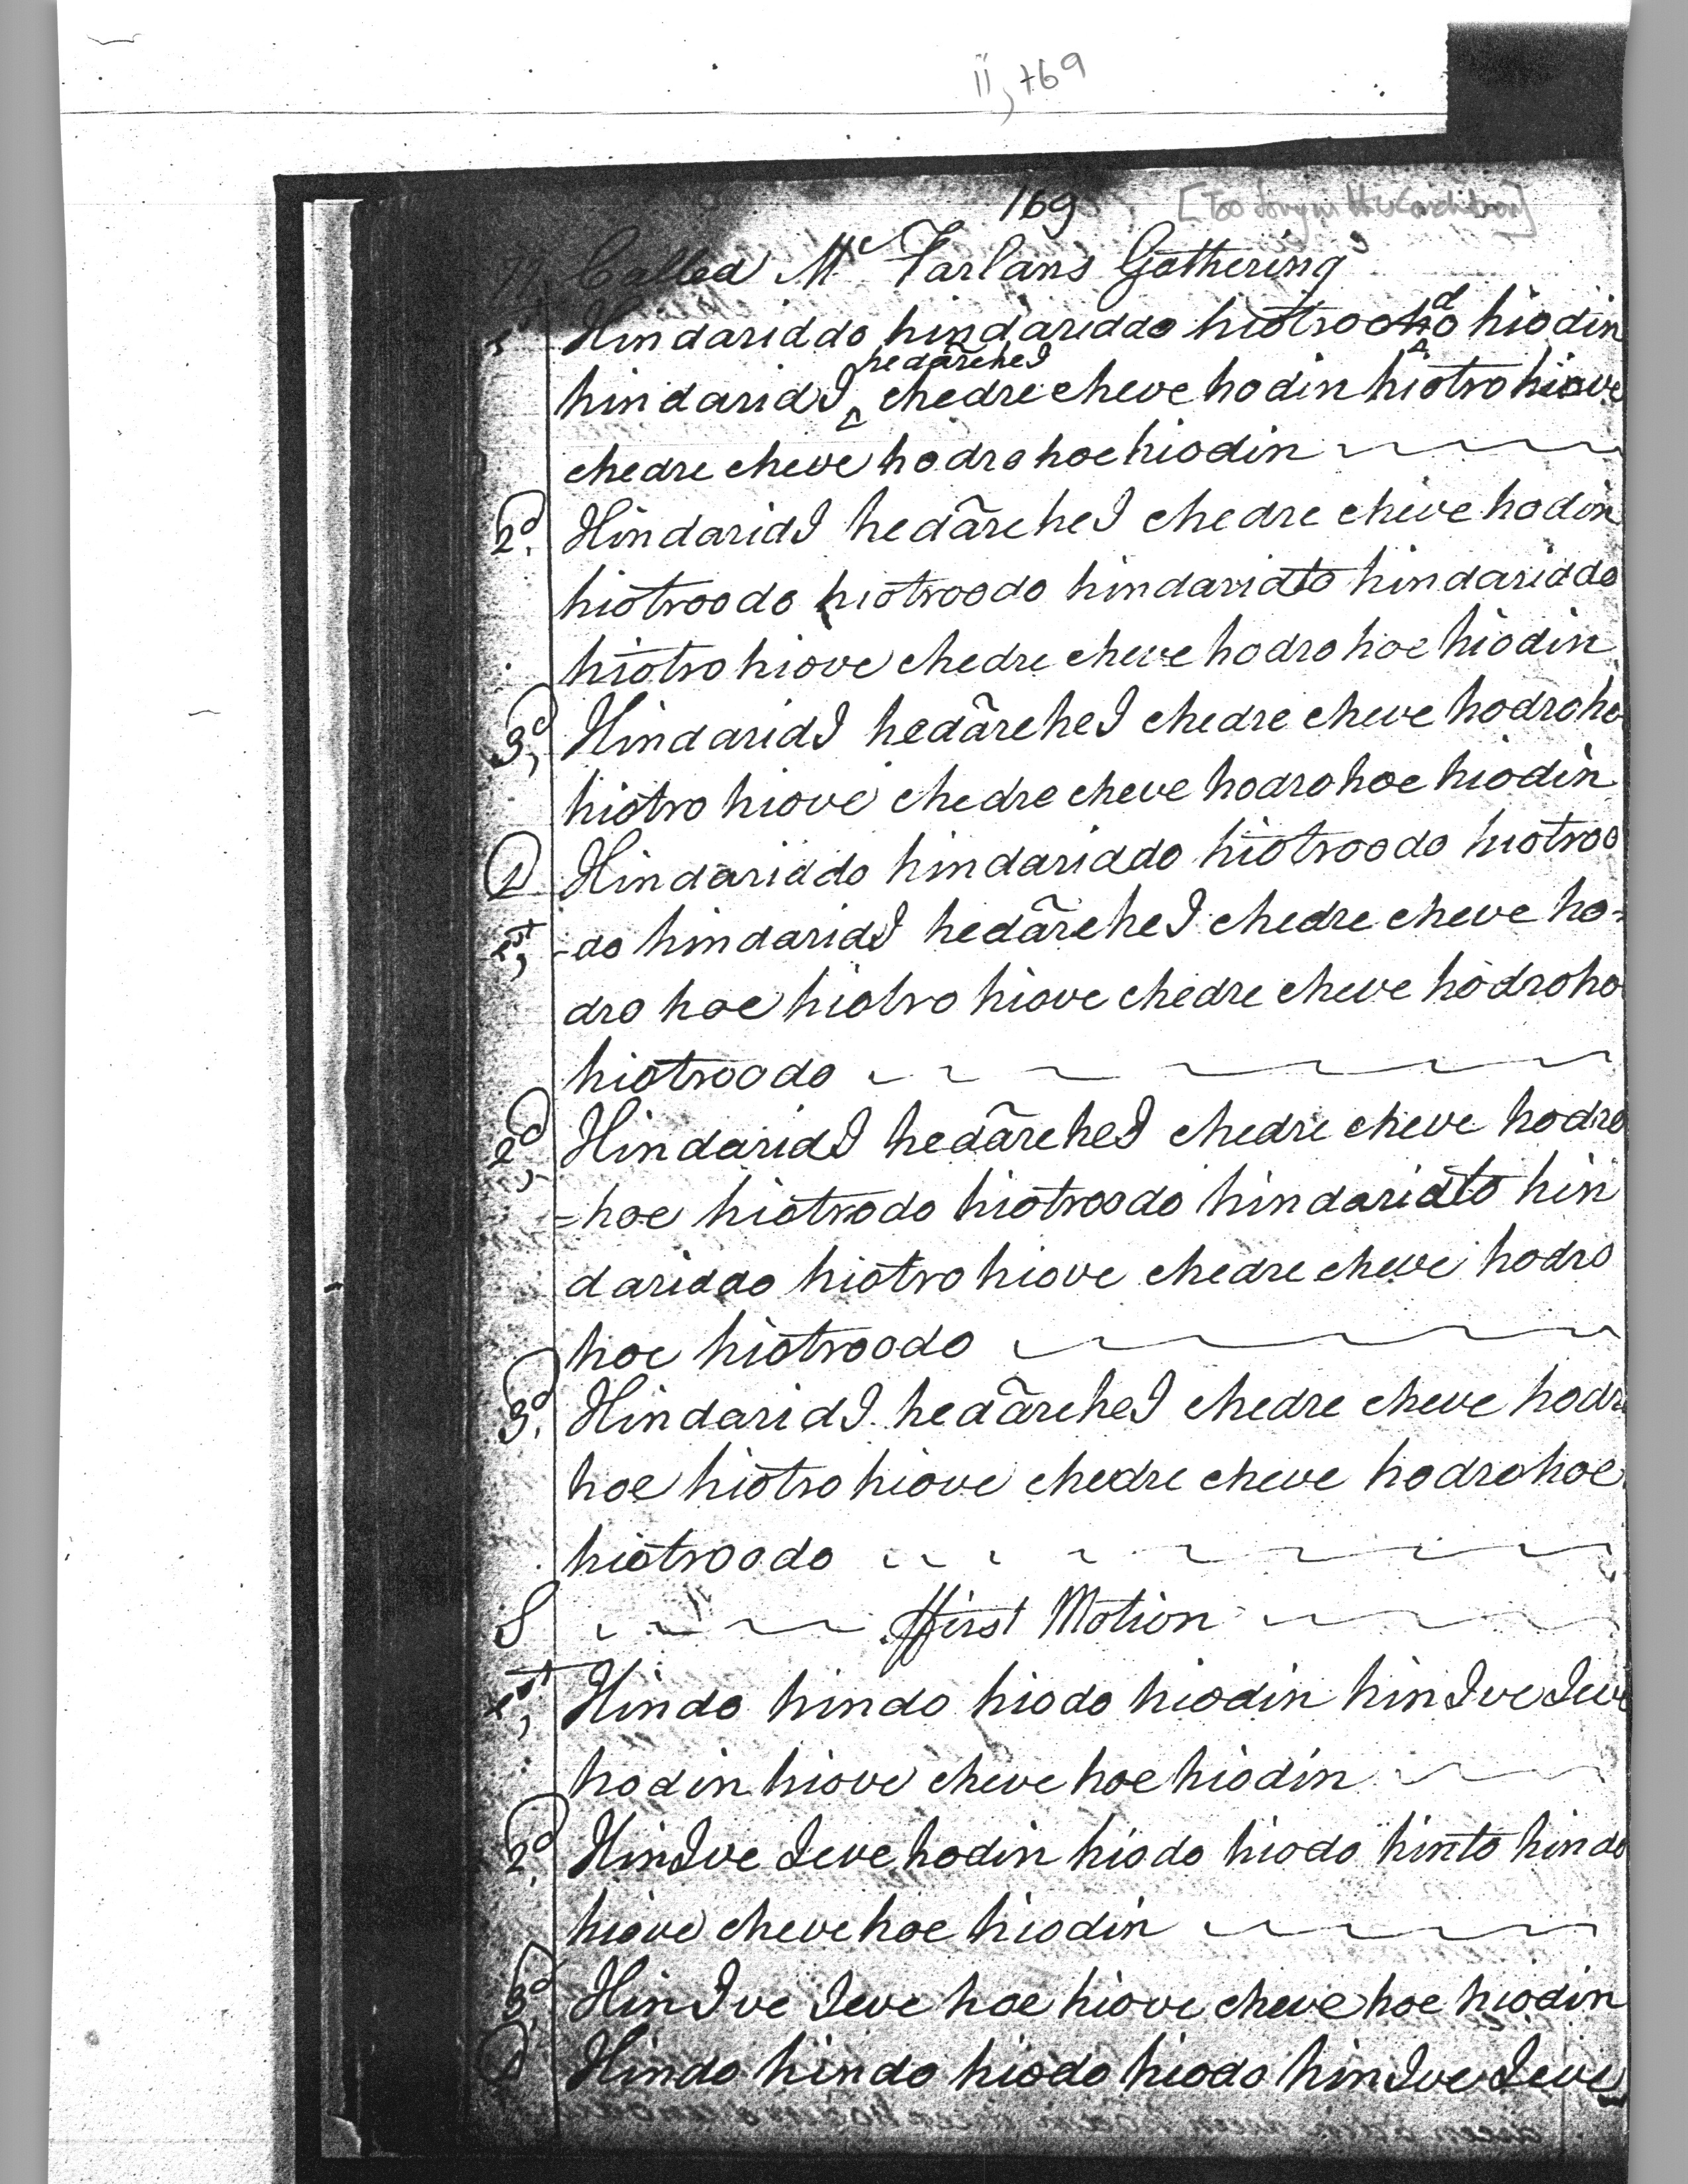 ii, 769
169
77 Called Mc Farlans Gathering
1st Hindariddo hindariddo hiotroodo hiodin
hedarehei
hindaridI chedre cheve hodin hiotro hiove
chedre cheve hodro hoe hiodin
2d. HindaridI hedãreheI chedre cheve hodin
hiotroodo hiotroodo hindaridto hindariddo
hiotro hiove chedre cheve hodro hoe hiodin
3d, HindaridI hedãreheI chedre cheve hodroho
hiotro hiove chedre cheve hodrohoe hiodin
D Hindariddo hindariddo hiotroodo hiotroo
1st, -do hindaridI hedãreheI chedre cheve ho-
dro hoe hiotro hiove chedre cheve hodroho
hiotroodo
2d, HindaridI hedãreheI chedre cheve hodro
=hoe hiotrodo hiotroodo hindaridto hin
dariddo hiotro hiove chedre cheve hodro
hoe hiotroodo
3d. HindaridI hedãreheI chedre cheve hodro
hoe hiotro hiove chedre cheve hodrohoe
hiotroodo
S ffirst Motion
1st, Hindo hindo hiodo hiodin hinIve Ieve
hodin hiove cheve hoe hiodin
2d. HinIve Ieve hodin hiodo hiodo hinto hindo
hiove cheve hoe hiodin
3d. HinIve Ieve hoe hiove cheve hoe hiodin
D Hindo hindo hiodo hiodo hinIve Ieve